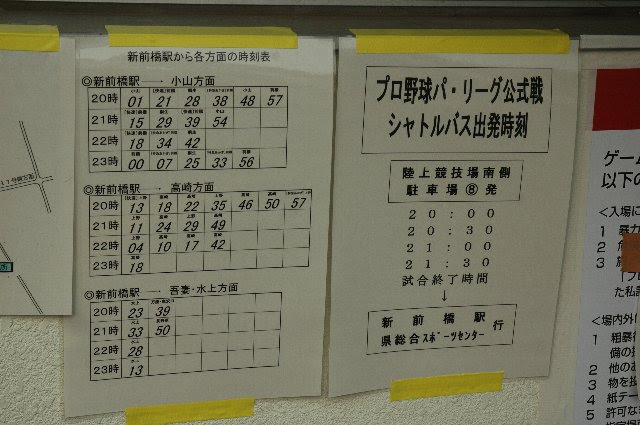 新前橋駅から各方面の時刻表
◎新前橋駅 → 小山方面
20時 01 21 28 38 48 57
21時 15 29 39 54
22時 18 34 42
23時 00 07 25 33 56
◎新前橋駅 → 高崎方面
20時 13 18 22 35 46 50 57
21時 11 24 29 49
22時 04 10 17 42
23時 18
◎新前橋駅 → 吾妻・水上方面
20時 23 39
21時 33 50
22時 28
23時 13
プロ野球パ・リーグ公式戦
シャトルバス出発時刻
陸上競技場南側
駐車場⑧発
20:00
20:30
21:00
21:30
試合終了時間
↓
新前橋駅
県総合スポーツセンター 行
ゲーム
以下の
<入場に
1 暴力
2 危
3
た私設
<場内外
1 粗暴行
備の
2 他のお
3 物を投
4 紙テー
5 許可な